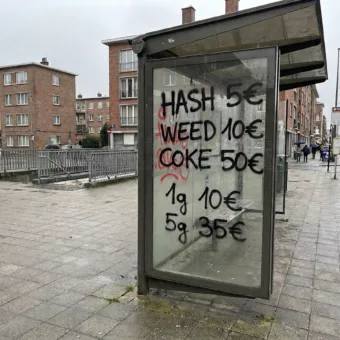 HASH 5€
WEED 10€
COKE 50€
1g 10€
5g 35€